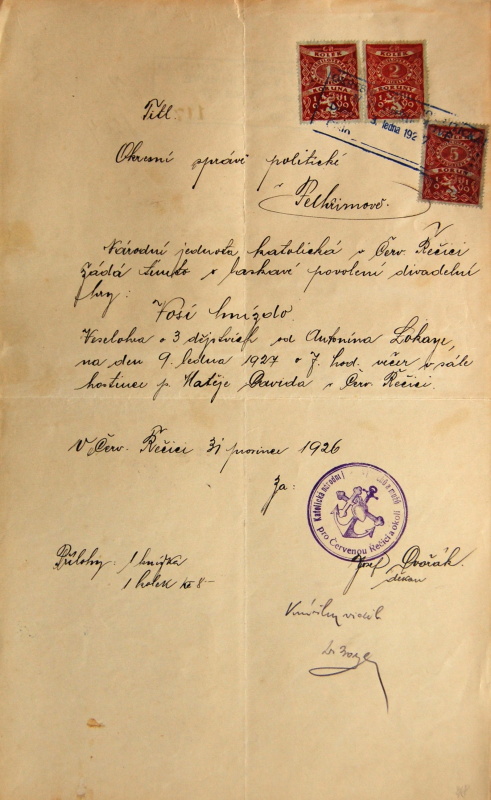 KOLEK
1
KORUNA
KOLEK
2
KORUNY
KOLEK
5
KORUN
5. ledna 1927
Titl.
Okresní správě politické
v Pelhřimově.
Národní jednota katolická v Červ. Řečici
žádá tímto o laskavé povolení divadelní
hry:
Vosí hnízdo
Veselohra o 3 dějstvích od Antonína Lokaye,
na den 9. ledna 1927 o 7. hod. večer v sále
hostince p. Matěje Davida v Červ. Řečici.
V Červ. Řečici 31 prosince 1926
Za:
Katolická národní
pro Červenou Řečici a okolí
Přílohy: 1 knížka
1 kolek Kč 8-
Josef Dvořák
děkan